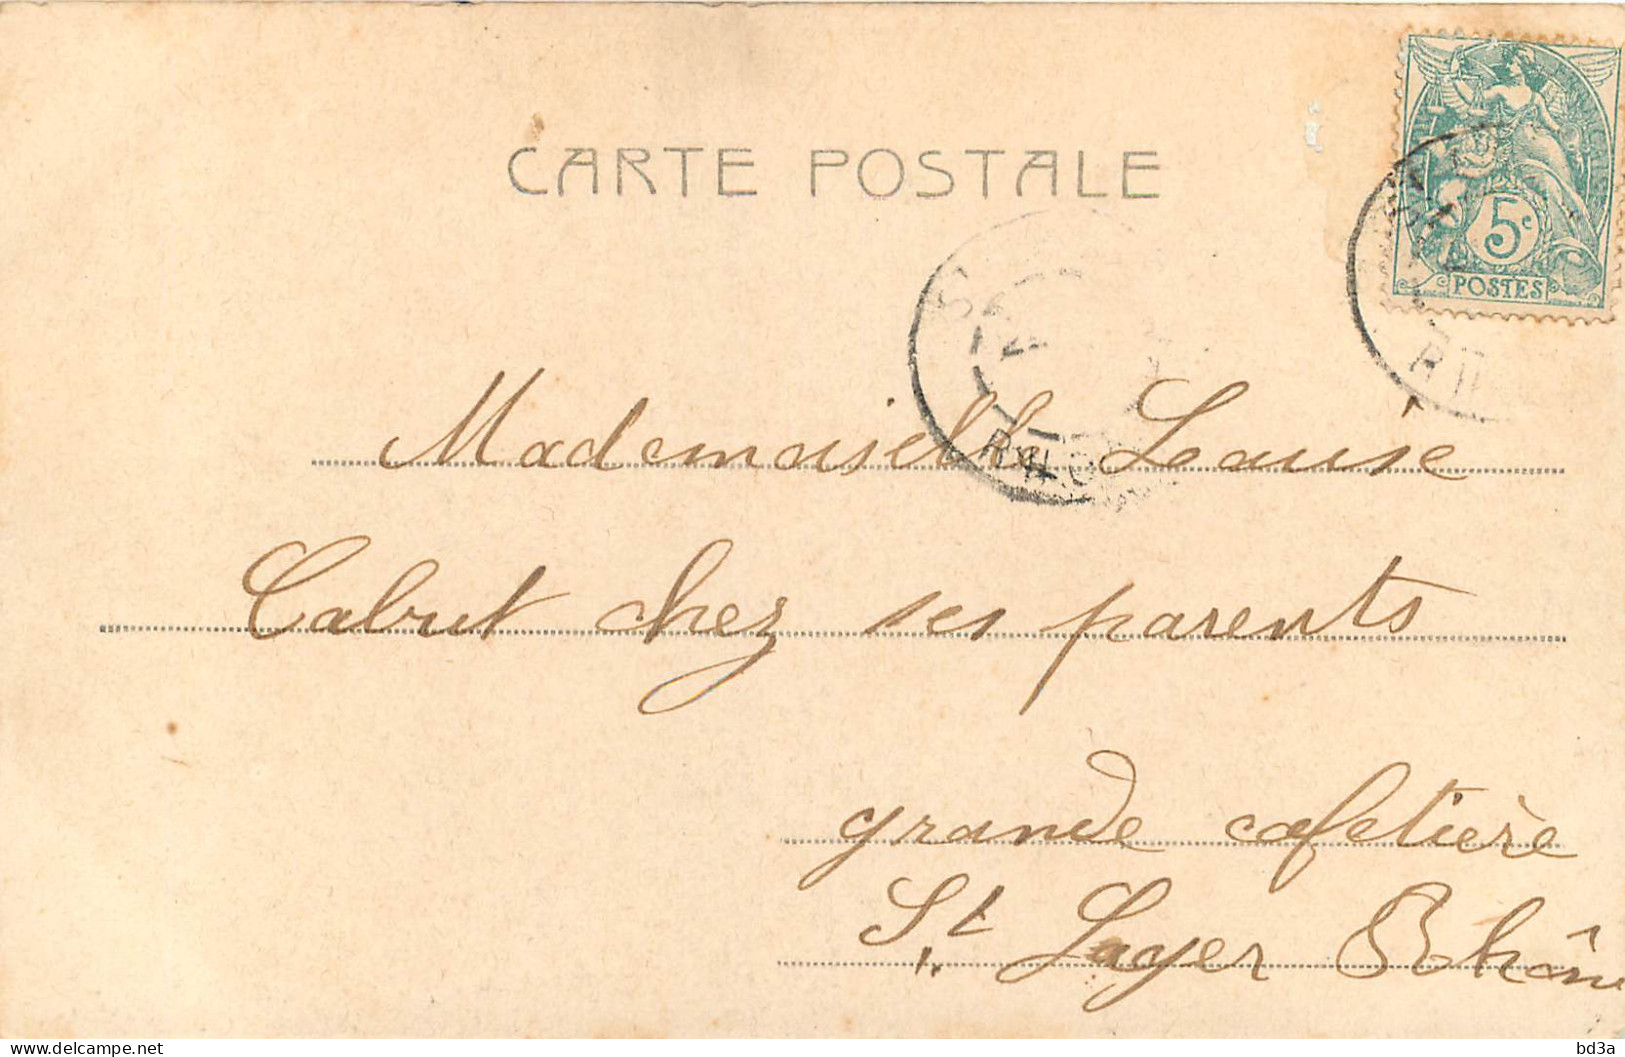 CARTE POSTALE
5c
POSTES
RHO
Mademoiselle Louise
Cabut chez ses parents
grande cafetière
St Lager Rhône
delcampe.net
bd3a